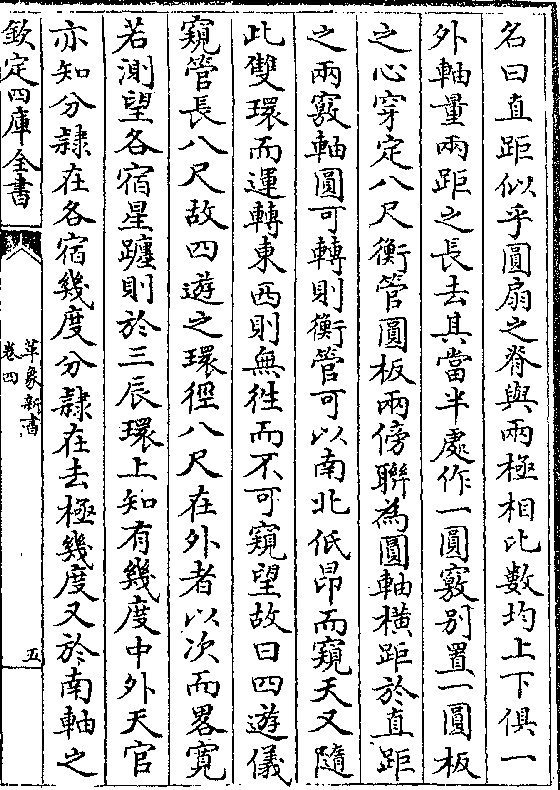 名曰直距似乎圓扇之脊與兩極相比數均上下俱一
外軸量兩距之長去其當半處作一圓竅别置一圓板
之心穿定八尺衡管圓板兩傍聯為圓軸横距於直距
之兩竅軸圓可轉則衡管可以南北低昂而窺天又隨
此雙環而運轉東西則無徃而不可窺望故曰四遊儀
窺管長八尺故四遊之環徑八尺在外者以次而畧寛
若測望各宿星躔則於三辰環上知有幾度中外天官
亦知分隷在各宿幾度分隷在去極幾度又於南軸之
欽定四庫全書
革象新書
卷四
五